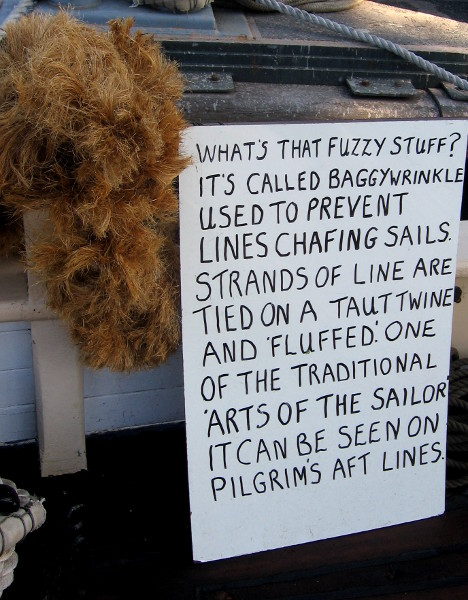 WHAT'S THAT FUZZY STUFF?
IT'S CALLED BAGGYWRINKLE
USED TO PREVENT
LINES CHAFING SAILS.
STRANDS OF LINE ARE
TIED ON A TAUT TWINE
AND 'FLUFFED'. ONE
OF THE TRADITIONAL
'ARTS OF THE SAILOR'
IT CAN BE SEEN ON
PILGRIM'S AFT LINES.